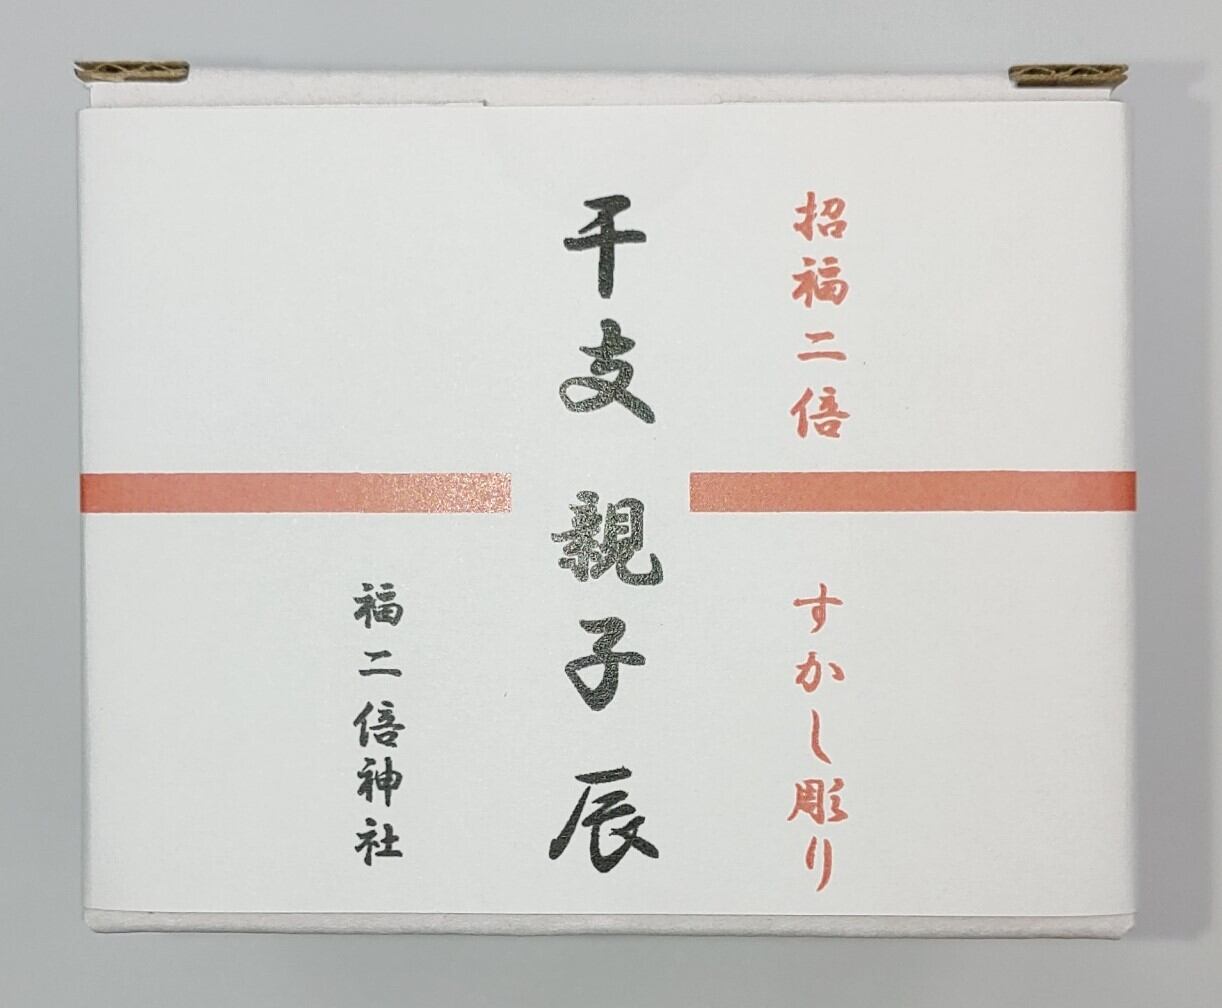 招福二倍
すかし彫り
干支 親子 辰
福二倍神社